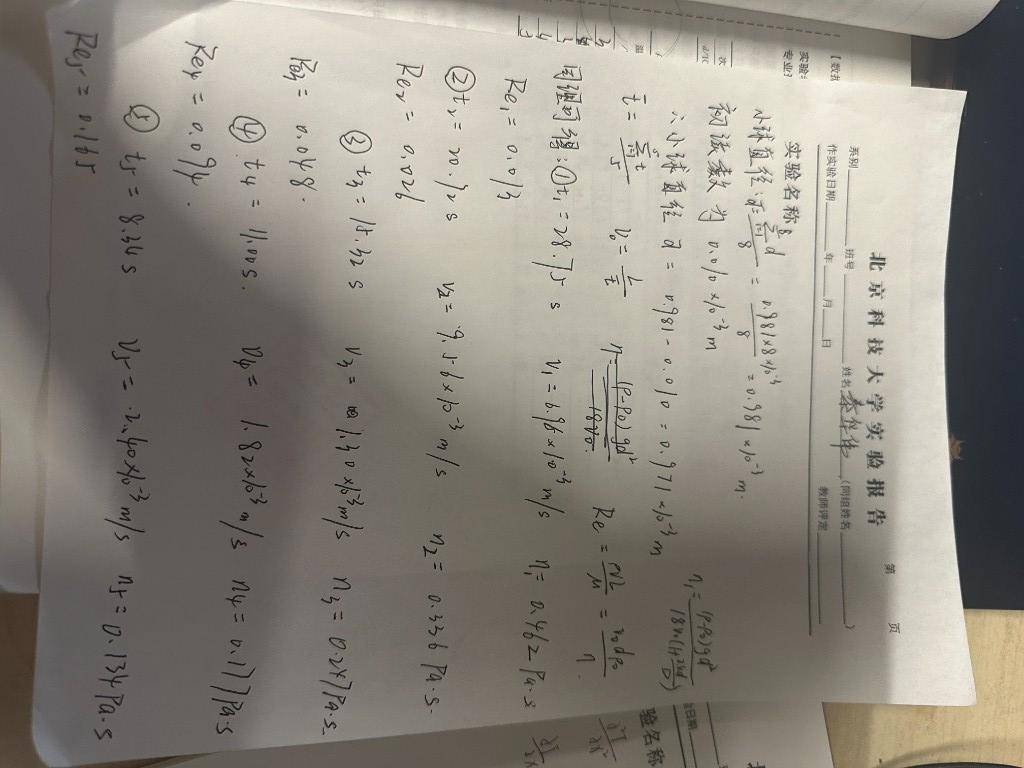 北京科技大学实验报告
第 页
系别 班号 姓名 (同组姓名 )
作实验日期 年 月 日 教师评定
实验名称
小球直径 d = Σd/8 = 0.981×8×10⁻³/8 = 0.981×10⁻³m.
初读数为 0.010×10⁻³m
∴小球直径 d = 0.981-0.010=0.971×10⁻³m
t̄ = Σt/5 v₀ = L/t̄ Re =
Re₁ = 0.013
①t₁=28.75s v₁ = 6.96×10⁻³m/s η₁ = 0.462 Pa.s
②t₂ = 20.92s v₂ = 9.56×10⁻³m/s η₂ = 0.336 Pa.s.
Re₂ = 0.026
③ t₃ = 15.32s v₃ = 1.30×10⁻²m/s η₃ = 0.247Pa.s.
Re₃ = 0.048.
④ t₄ = 11.00s. v₄ = 1.82×10⁻²m/s η₄ = 0.177Pa.s
Re₄ = 0.094.
⑤ t₅ = 8.34s v₅ = 2.40×10⁻²m/s η₅ = 0.134Pa.s
Re₅ = 0.165